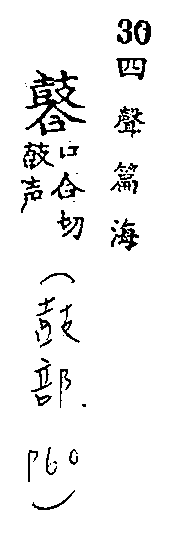 30 四聲篇海
口合切
鼓声
（鼓部.
P60）